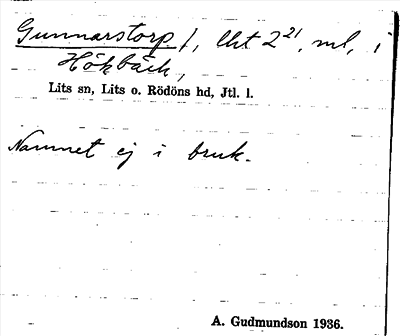 Gunnarstorp 1, lht 2²¹, ml, i
Hökbäck,
Lits sn, Lits o. Rödöns hd, Jtl. l.
Namnet ej i bruk.
A. Gudmundson 1936.